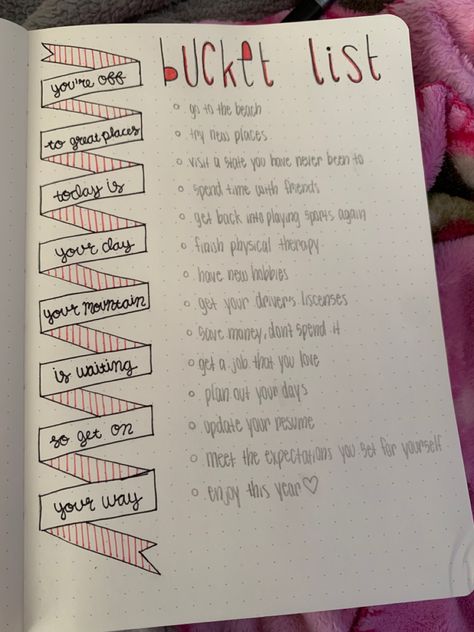 bucket list
you're off
to great places
today is
your day
your mountain
is waiting
so get on
your way
go to the beach
try new places
visit a state you have never been to
spend time with friends
get back into playing sports again
finish physical therapy
have new hobbies
get your driver's liscenses
save money, dont spend it
get a job that you love
plan out your days
update your resume
meet the expectations you set for yourself
enjoy this year♡